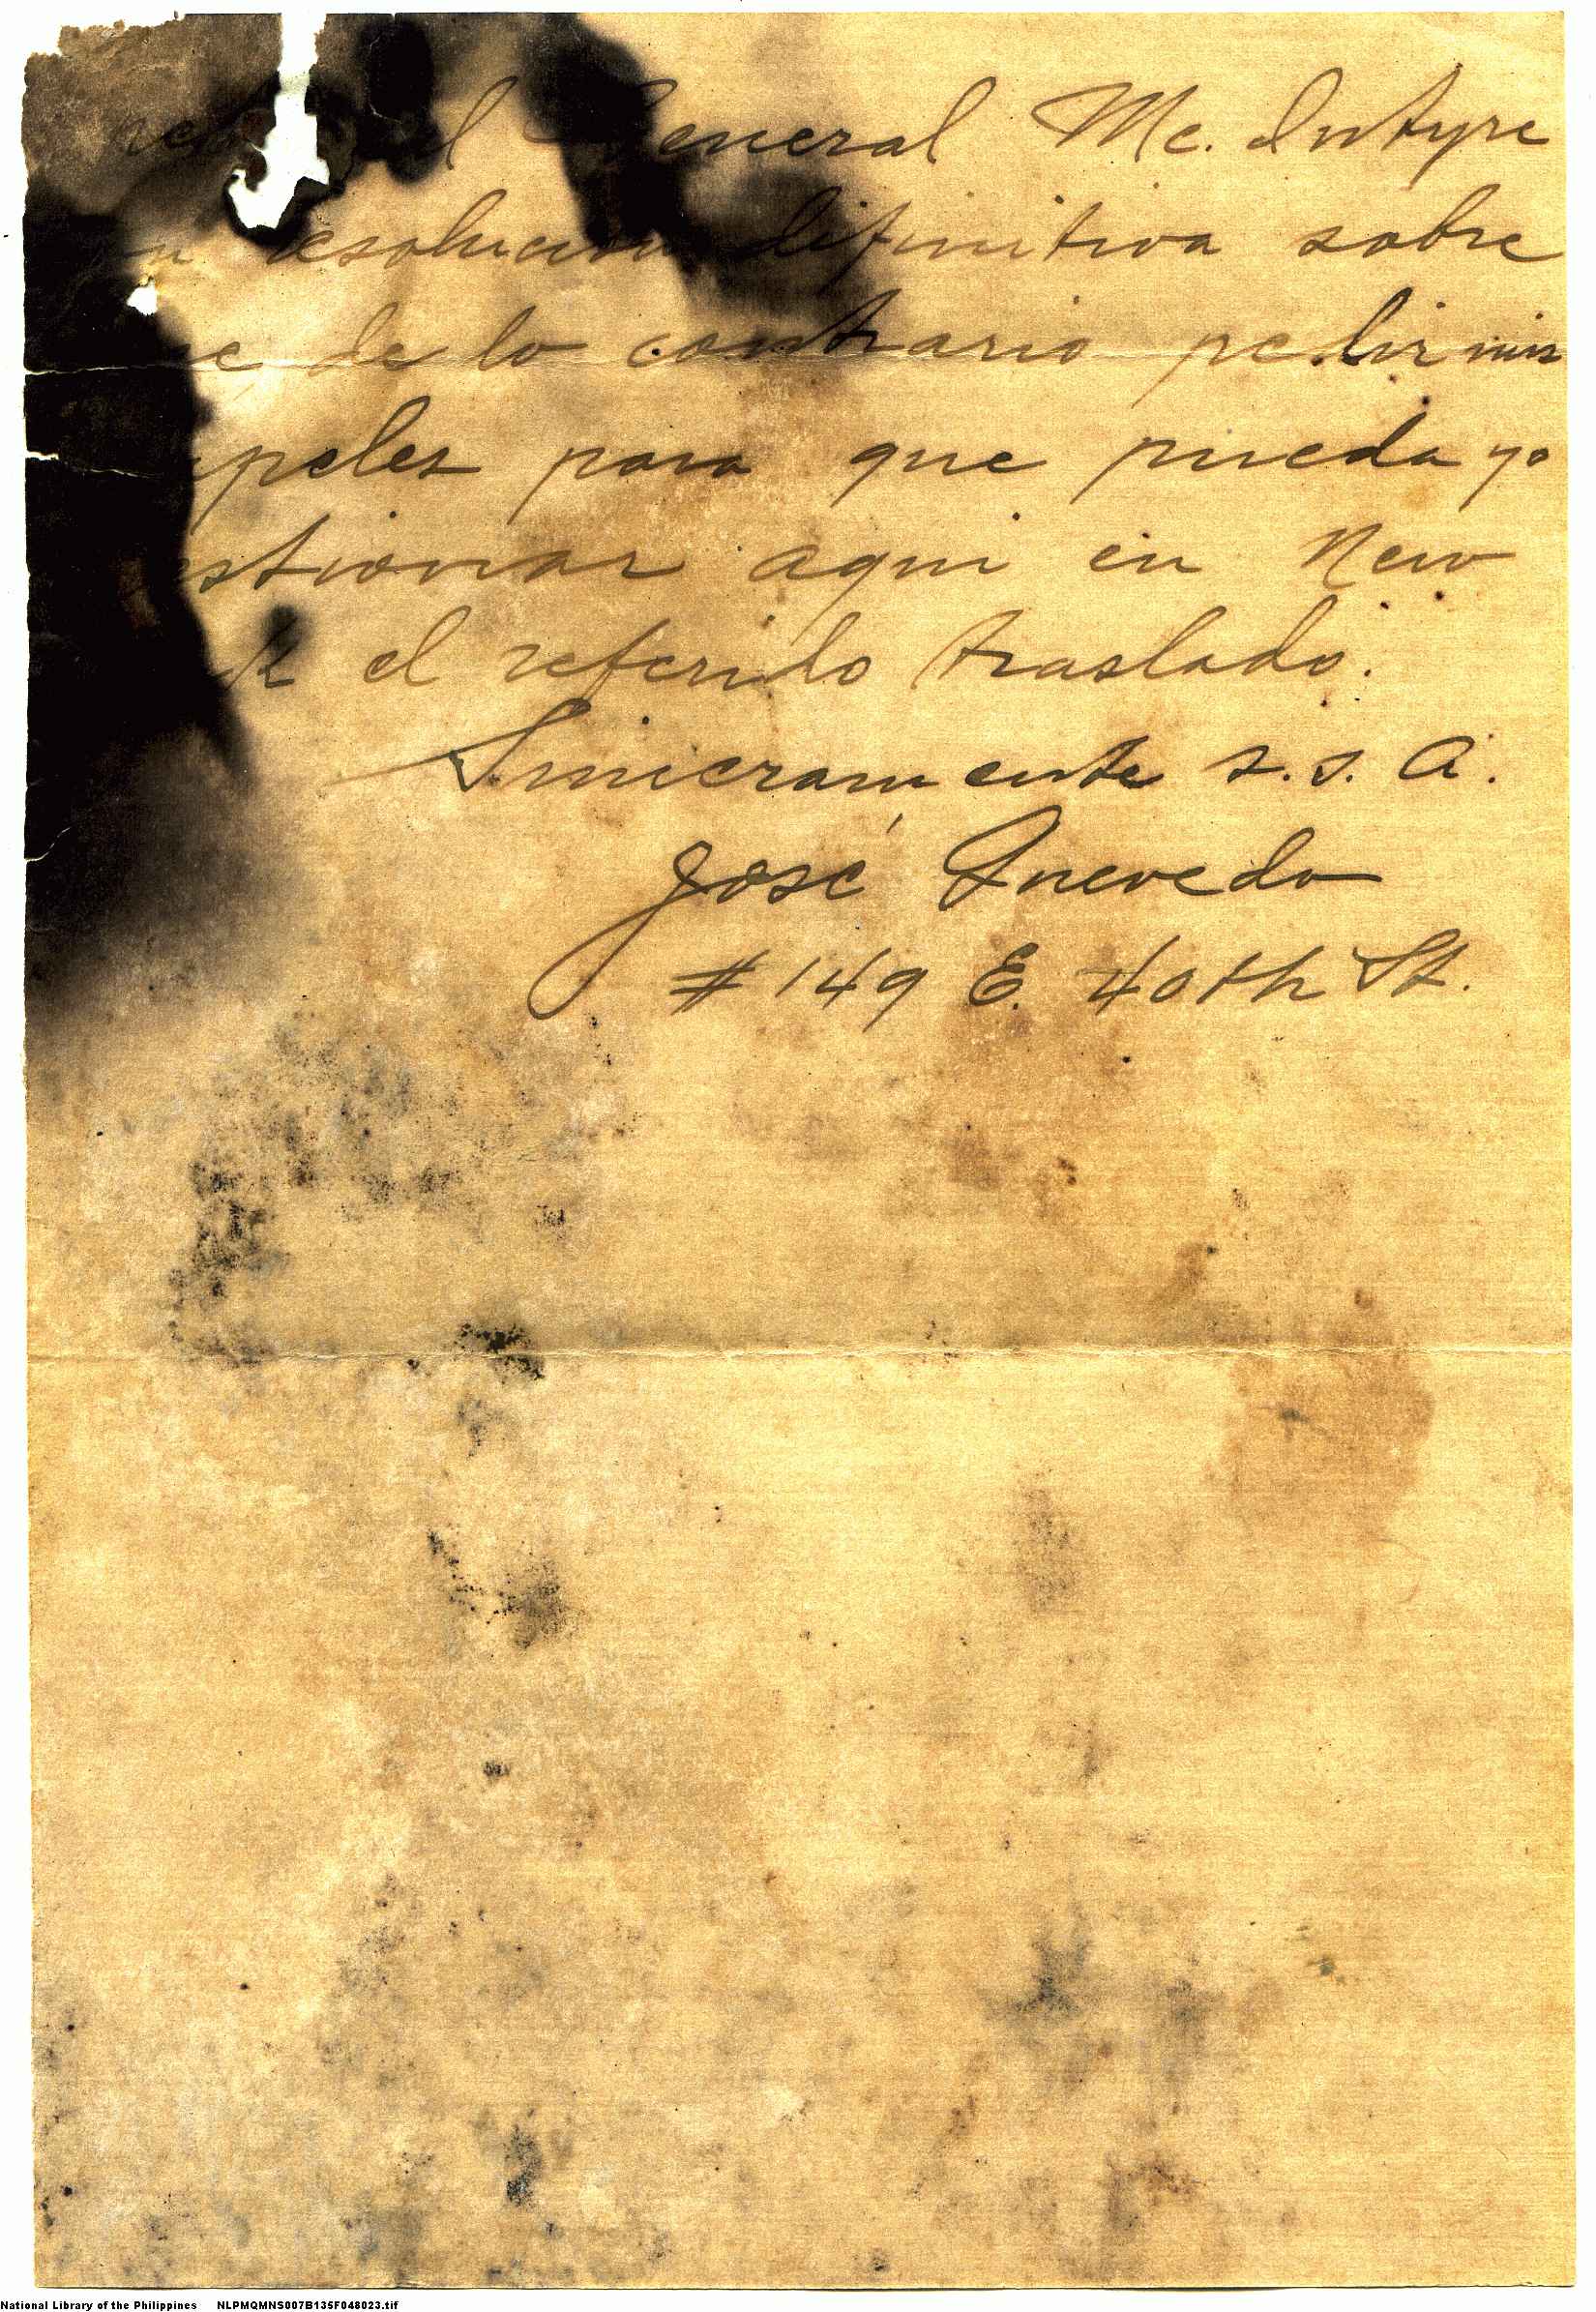 al General Mc. Intyre
resolucion difinitiva sobre
de lo contrario pedir mis
papeles para que pueda yo
gestionar aqui en New
el referido traslado.
Sinceramente s. s. A.
José Quevedo
# 149 E. 40th St.
National Library of the Philippines NLPMQMNS007B135F048023.tif